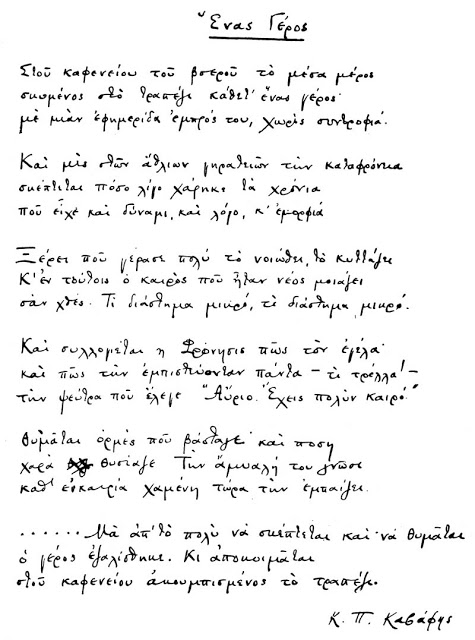 Ἕνας Γέρος
Στοῦ καφενείου τοῦ βοεροῦ τὸ μέσα μέρος
σκυμένος στὸ τραπέζι κάθετ' ἕνας γέρος·
μὲ μιὰν ἐφημερίδα ἐμπρός του, χωρὶς συντροφιά.
Καὶ μὲς στῶν ἄθλιων γηρατειῶν τὴν καταφρόνια
σκέπτεται πόσο λίγο χάρηκε τὰ χρόνια
ποῦ εἶχε καὶ δύναμι, καὶ λόγο, κ' ἐμορφιά
Ξέρει ποῦ γέρασε πολύ· τὸ νοιώθει, τὸ κυττάζει
Κ' ἐν τούτοις ὁ καιρὸς ποῦ ἦταν νέος μοιάζει
σὰν χθές. Τί διάστημα μικρό, τί διάστημα μικρό.
Καὶ συλλογιέται ἡ Φρόνησις πῶς τὸν ἐγέλα·
καὶ πῶς τὴν ἐμπιστεύονταν πάντα — τί τρέλλα! —
τὴν ψεύτρα ποῦ ἔλεγε "Αὔριο. Ἔχεις πολὺν καιρό."
Θυμᾶται ὁρμὲς ποῦ βάσταγε· καὶ πόση
χαρὰ θυσίαζε Τὴν ἄμυαλή του γνῶσι
κάθ' εὐκαιρία χαμένη τώρα τὴν ἐμπαίζει.
...... Μὰ ἀπ' τὸ πολὺ νὰ σκέπτεται καὶ νὰ θυμᾶται
ὁ γέρος ἐζαλίσθηκε. Κι ἀποκοιμᾶται
στοῦ καφενείου ἀκουμπισμένος τὸ τραπέζι.
Κ. Π. Καβάφης